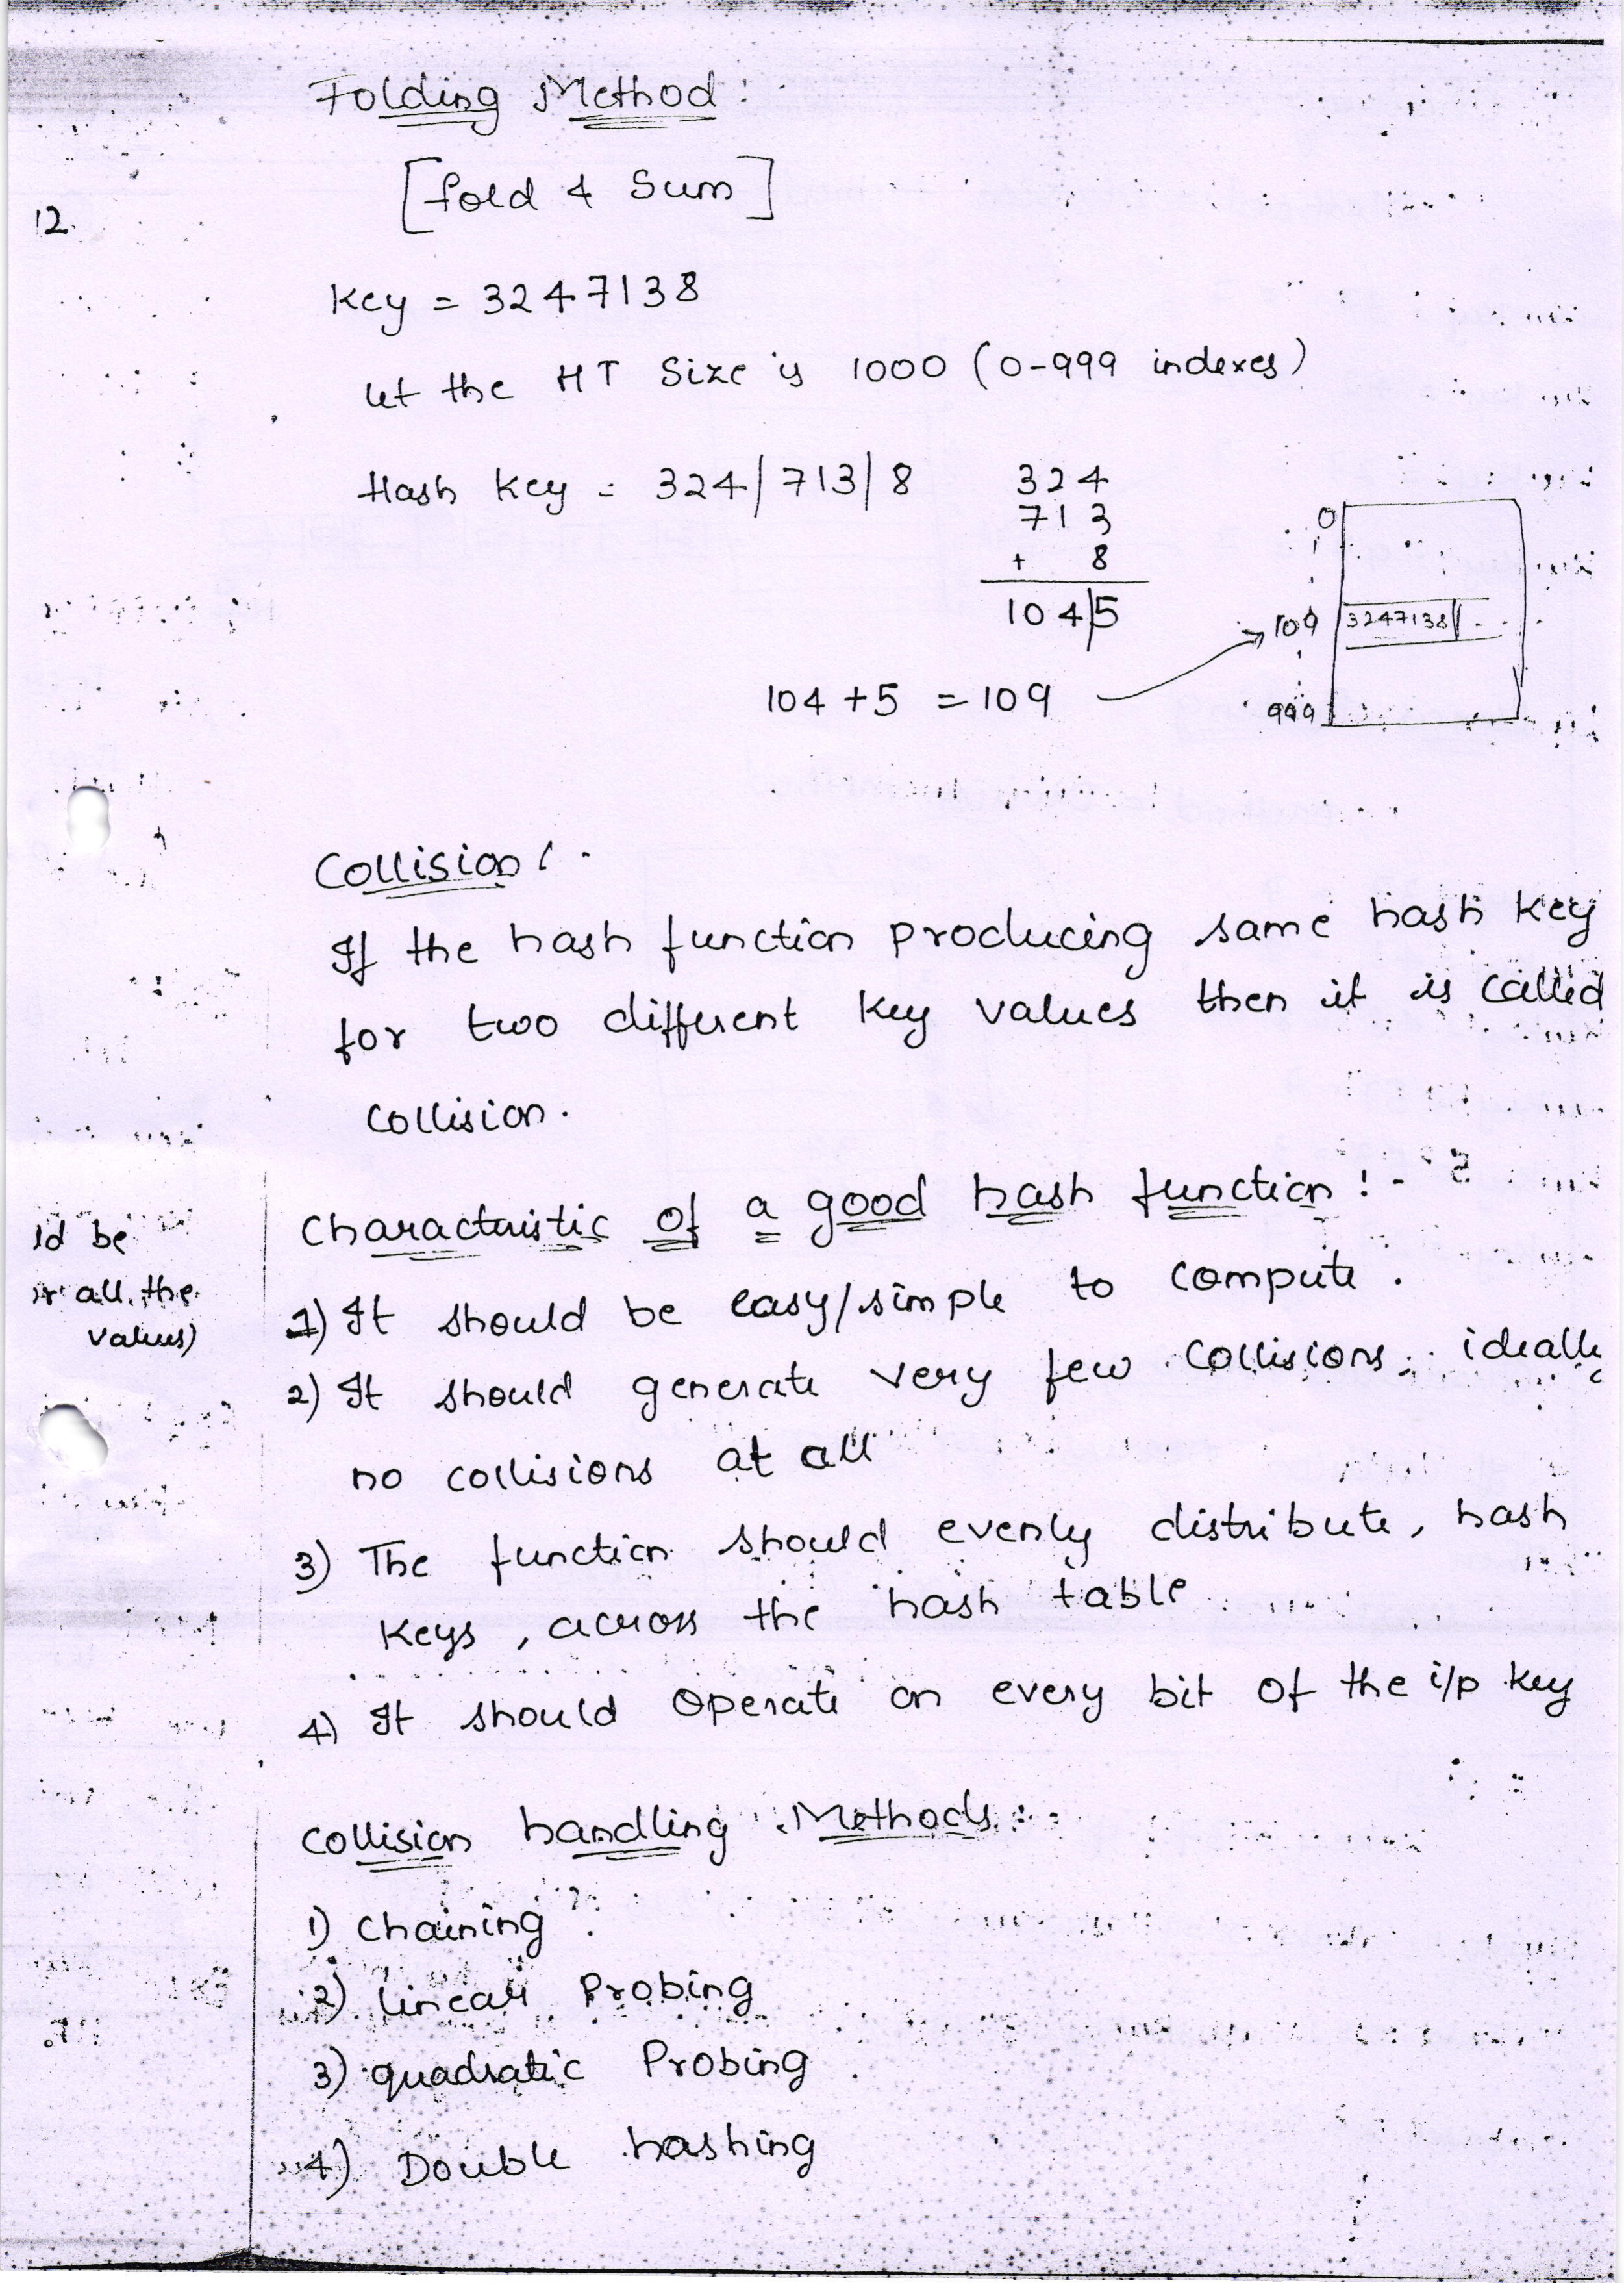 Folding Method :
[fold & Sum]
12.
Key = 3247138
let the HT Size is 1000 (0-999 indexes)
Hash Key = 324/713/8
324
713
+ 8
104/5
0
1
109 3247138
999
104 + 5 = 109
Collision :-
If the hash function producing same hash key
for two different key values then it is called
collision.
Characteristic of a good hash function :-
1) It should be easy/simple to compute.
2) It should generate very few collisions, ideally
no collisions at all
3) The function should evenly distribute, hash
keys, across the hash table
4) It should operate on every bit of the i/p key
ld be
all the
values)
Collision handling Methods :-
1) Chaining
2) linear Probing
3) quadratic Probing
4) Double hashing